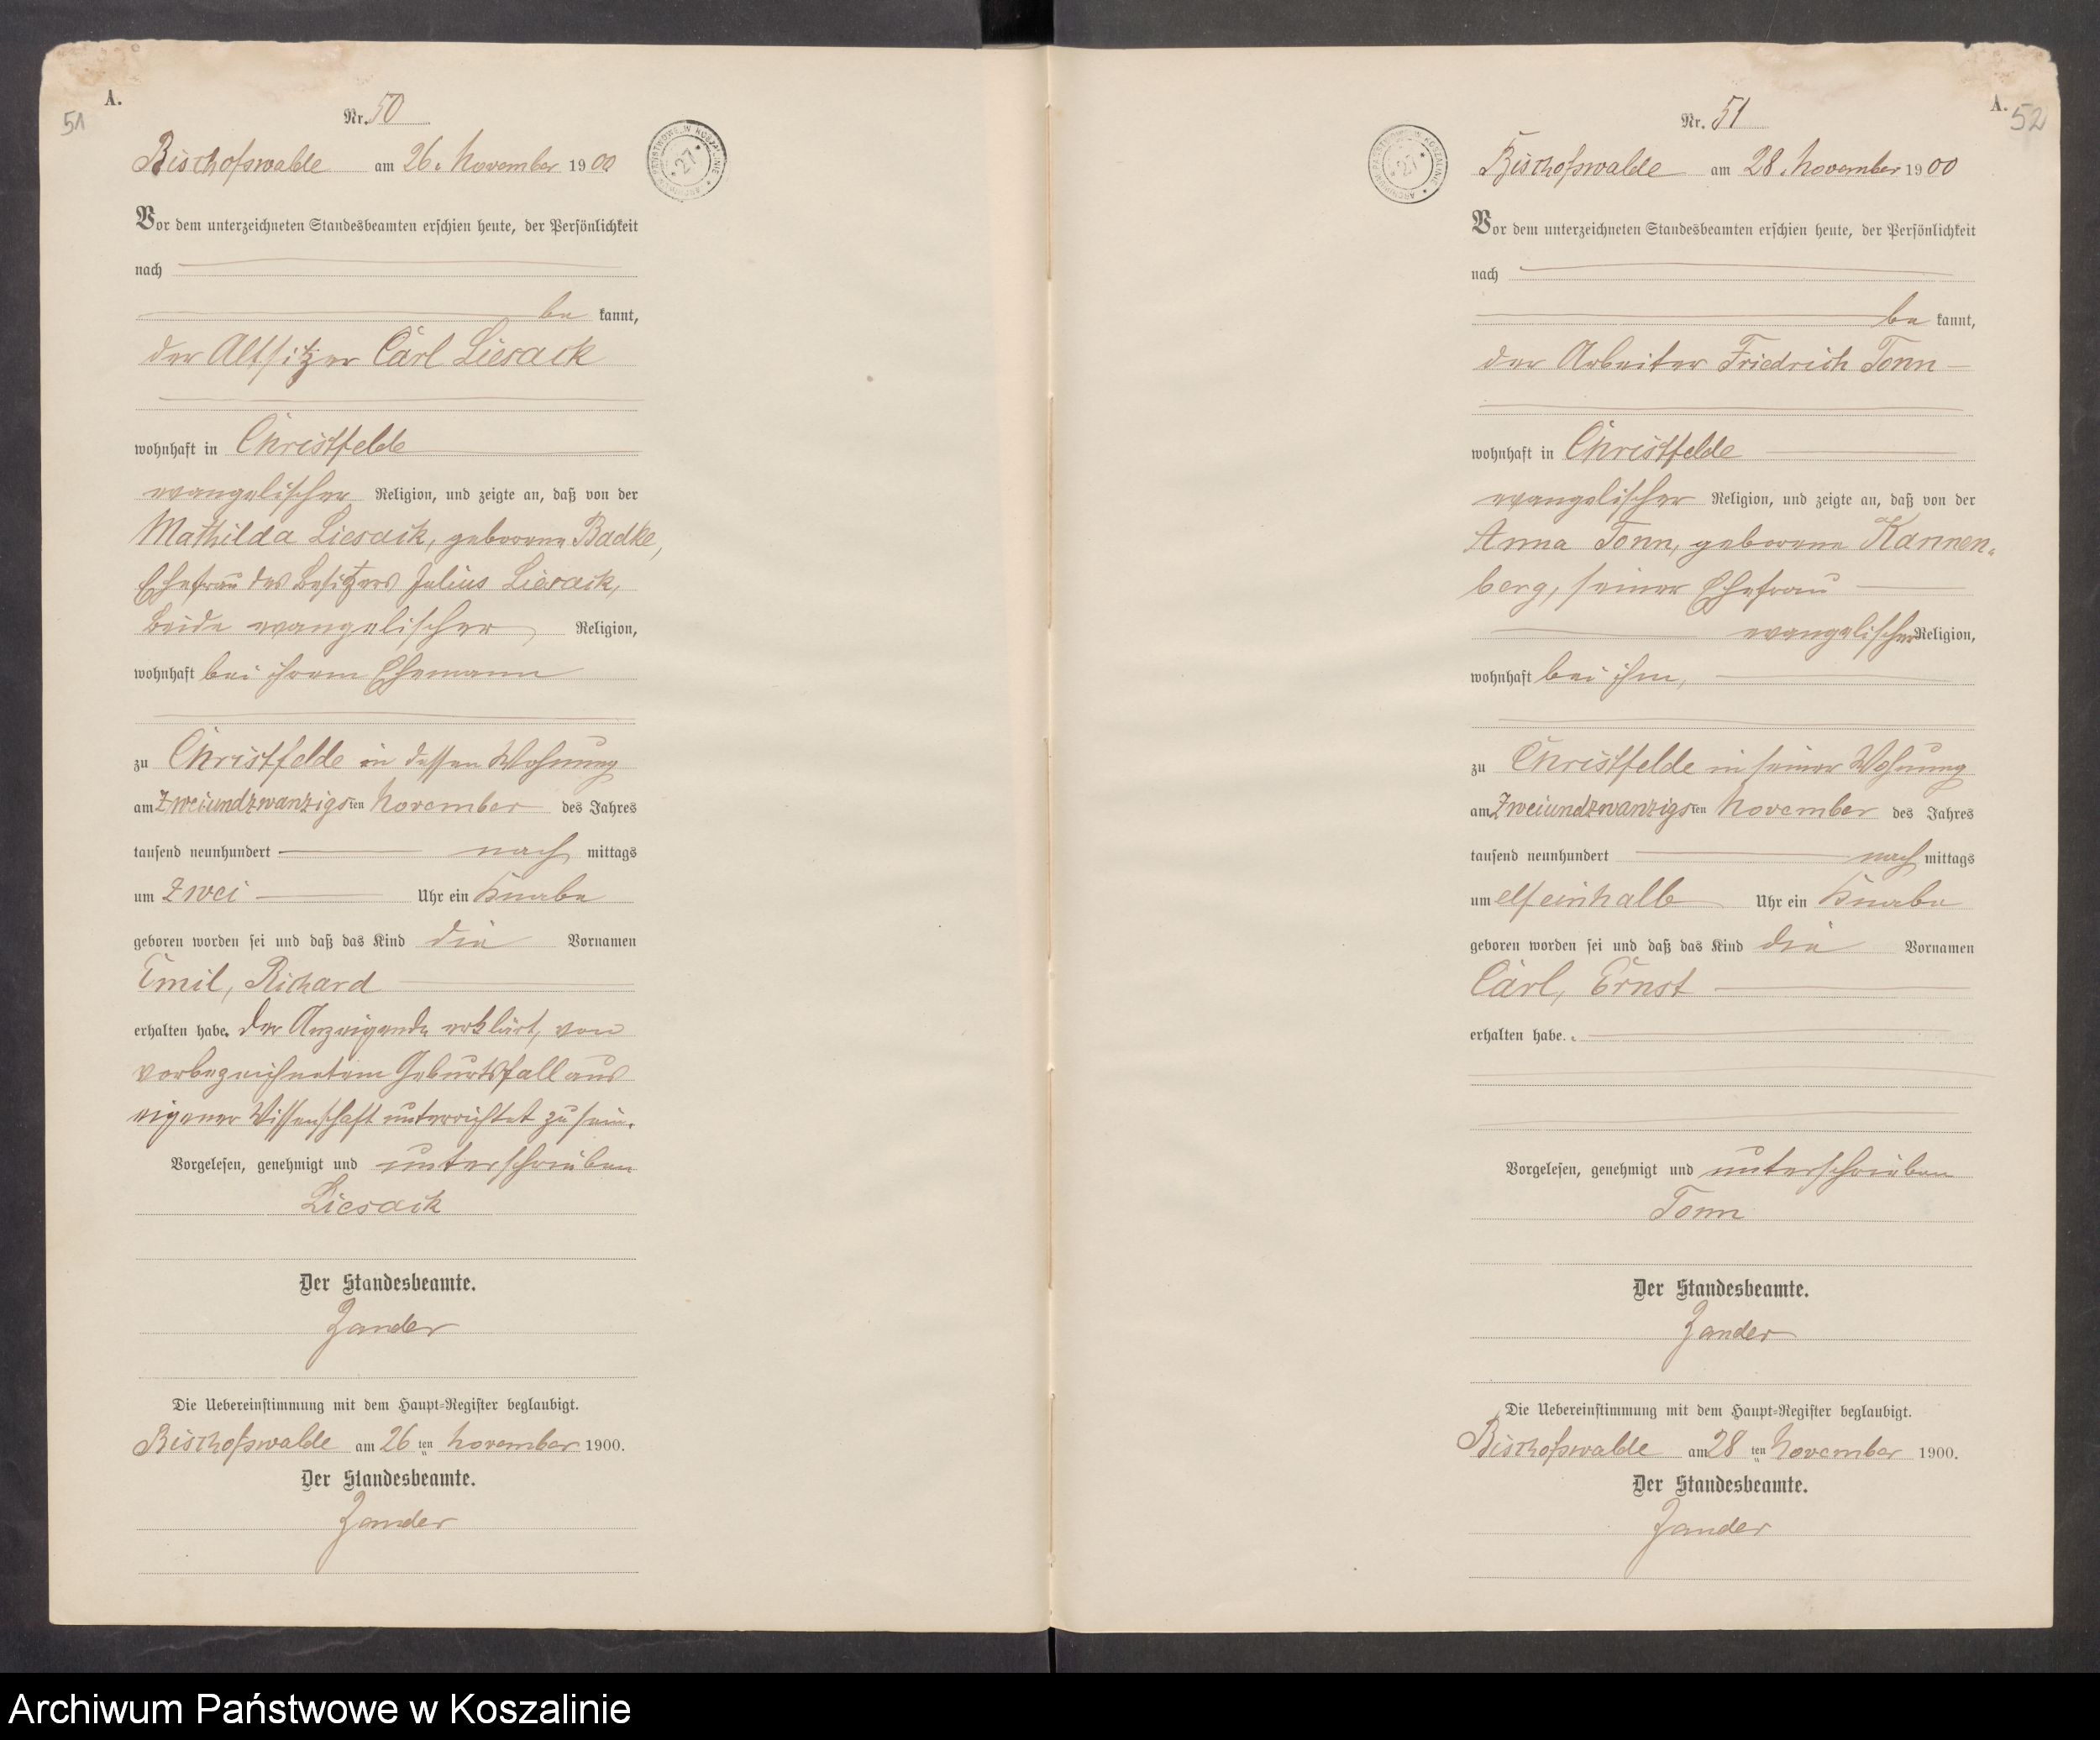 A.
51
Nr. 50
Bischofswalde am 26. November 1900
ARCHIWUM PAŃSTWOWE W KOSZALINIE * 27 *
Vor dem unterzeichneten Standesbeamten erschien heute, der Persönlichkeit
nach
be kannt,
der Altsitzer Carl Liesack
wohnhaft in Christfelde
evangelischer Religion, und zeigte an, daß von der
Mathilda Liesack, geborene Badke,
Ehefrau des Besitzers Julius Liesack,
beide evangelischer Religion,
wohnhaft bei ihrem Ehemann
zu Christfelde in dessen Wohnung
am Zweiundzwanzigsten November des Jahres
tausend neunhundert nach mittags
um Zwei Uhr ein Knabe
geboren worden sei und daß das Kind die Vornamen
Emil, Richard
erhalten habe. Der Anzeigende erklärt, von
vorbezeichnetem Geburtsfall aus
eigener Wissenschaft unterrichtet zu sein.
Vorgelesen, genehmigt und unterschrieben
Liesack
Der Standesbeamte.
Zander
Die Uebereinstimmung mit dem Haupt-Register beglaubigt.
Bischofswalde am 26 ten November 1900.
Der Standesbeamte.
Zander
A.
52
Nr. 51
ARCHIWUM PAŃSTWOWE W KOSZALINIE * 27 *
Bischofswalde am 28. November 1900
Vor dem unterzeichneten Standesbeamten erschien heute, der Persönlichkeit
nach
be kannt,
der Arbeiter Friedrich Tonn
wohnhaft in Christfelde
evangelischer Religion, und zeigte an, daß von der
Anna Tonn, geborene Kannen-
berg, seiner Ehefrau
evangelischer Religion,
wohnhaft bei ihm,
zu Christfelde in seiner Wohnung
am Zweiundzwanzigsten November des Jahres
tausend neunhundert nach mittags
um elfeinhalb Uhr ein Knabe
geboren worden sei und daß das Kind die Vornamen
Carl, Ernst
erhalten habe.
Vorgelesen, genehmigt und unterschrieben
Tonn
Der Standesbeamte.
Zander
Die Uebereinstimmung mit dem Haupt-Register beglaubigt.
Bischofswalde am 28 ten November 1900.
Der Standesbeamte.
Zander
Archiwum Państwowe w Koszalinie